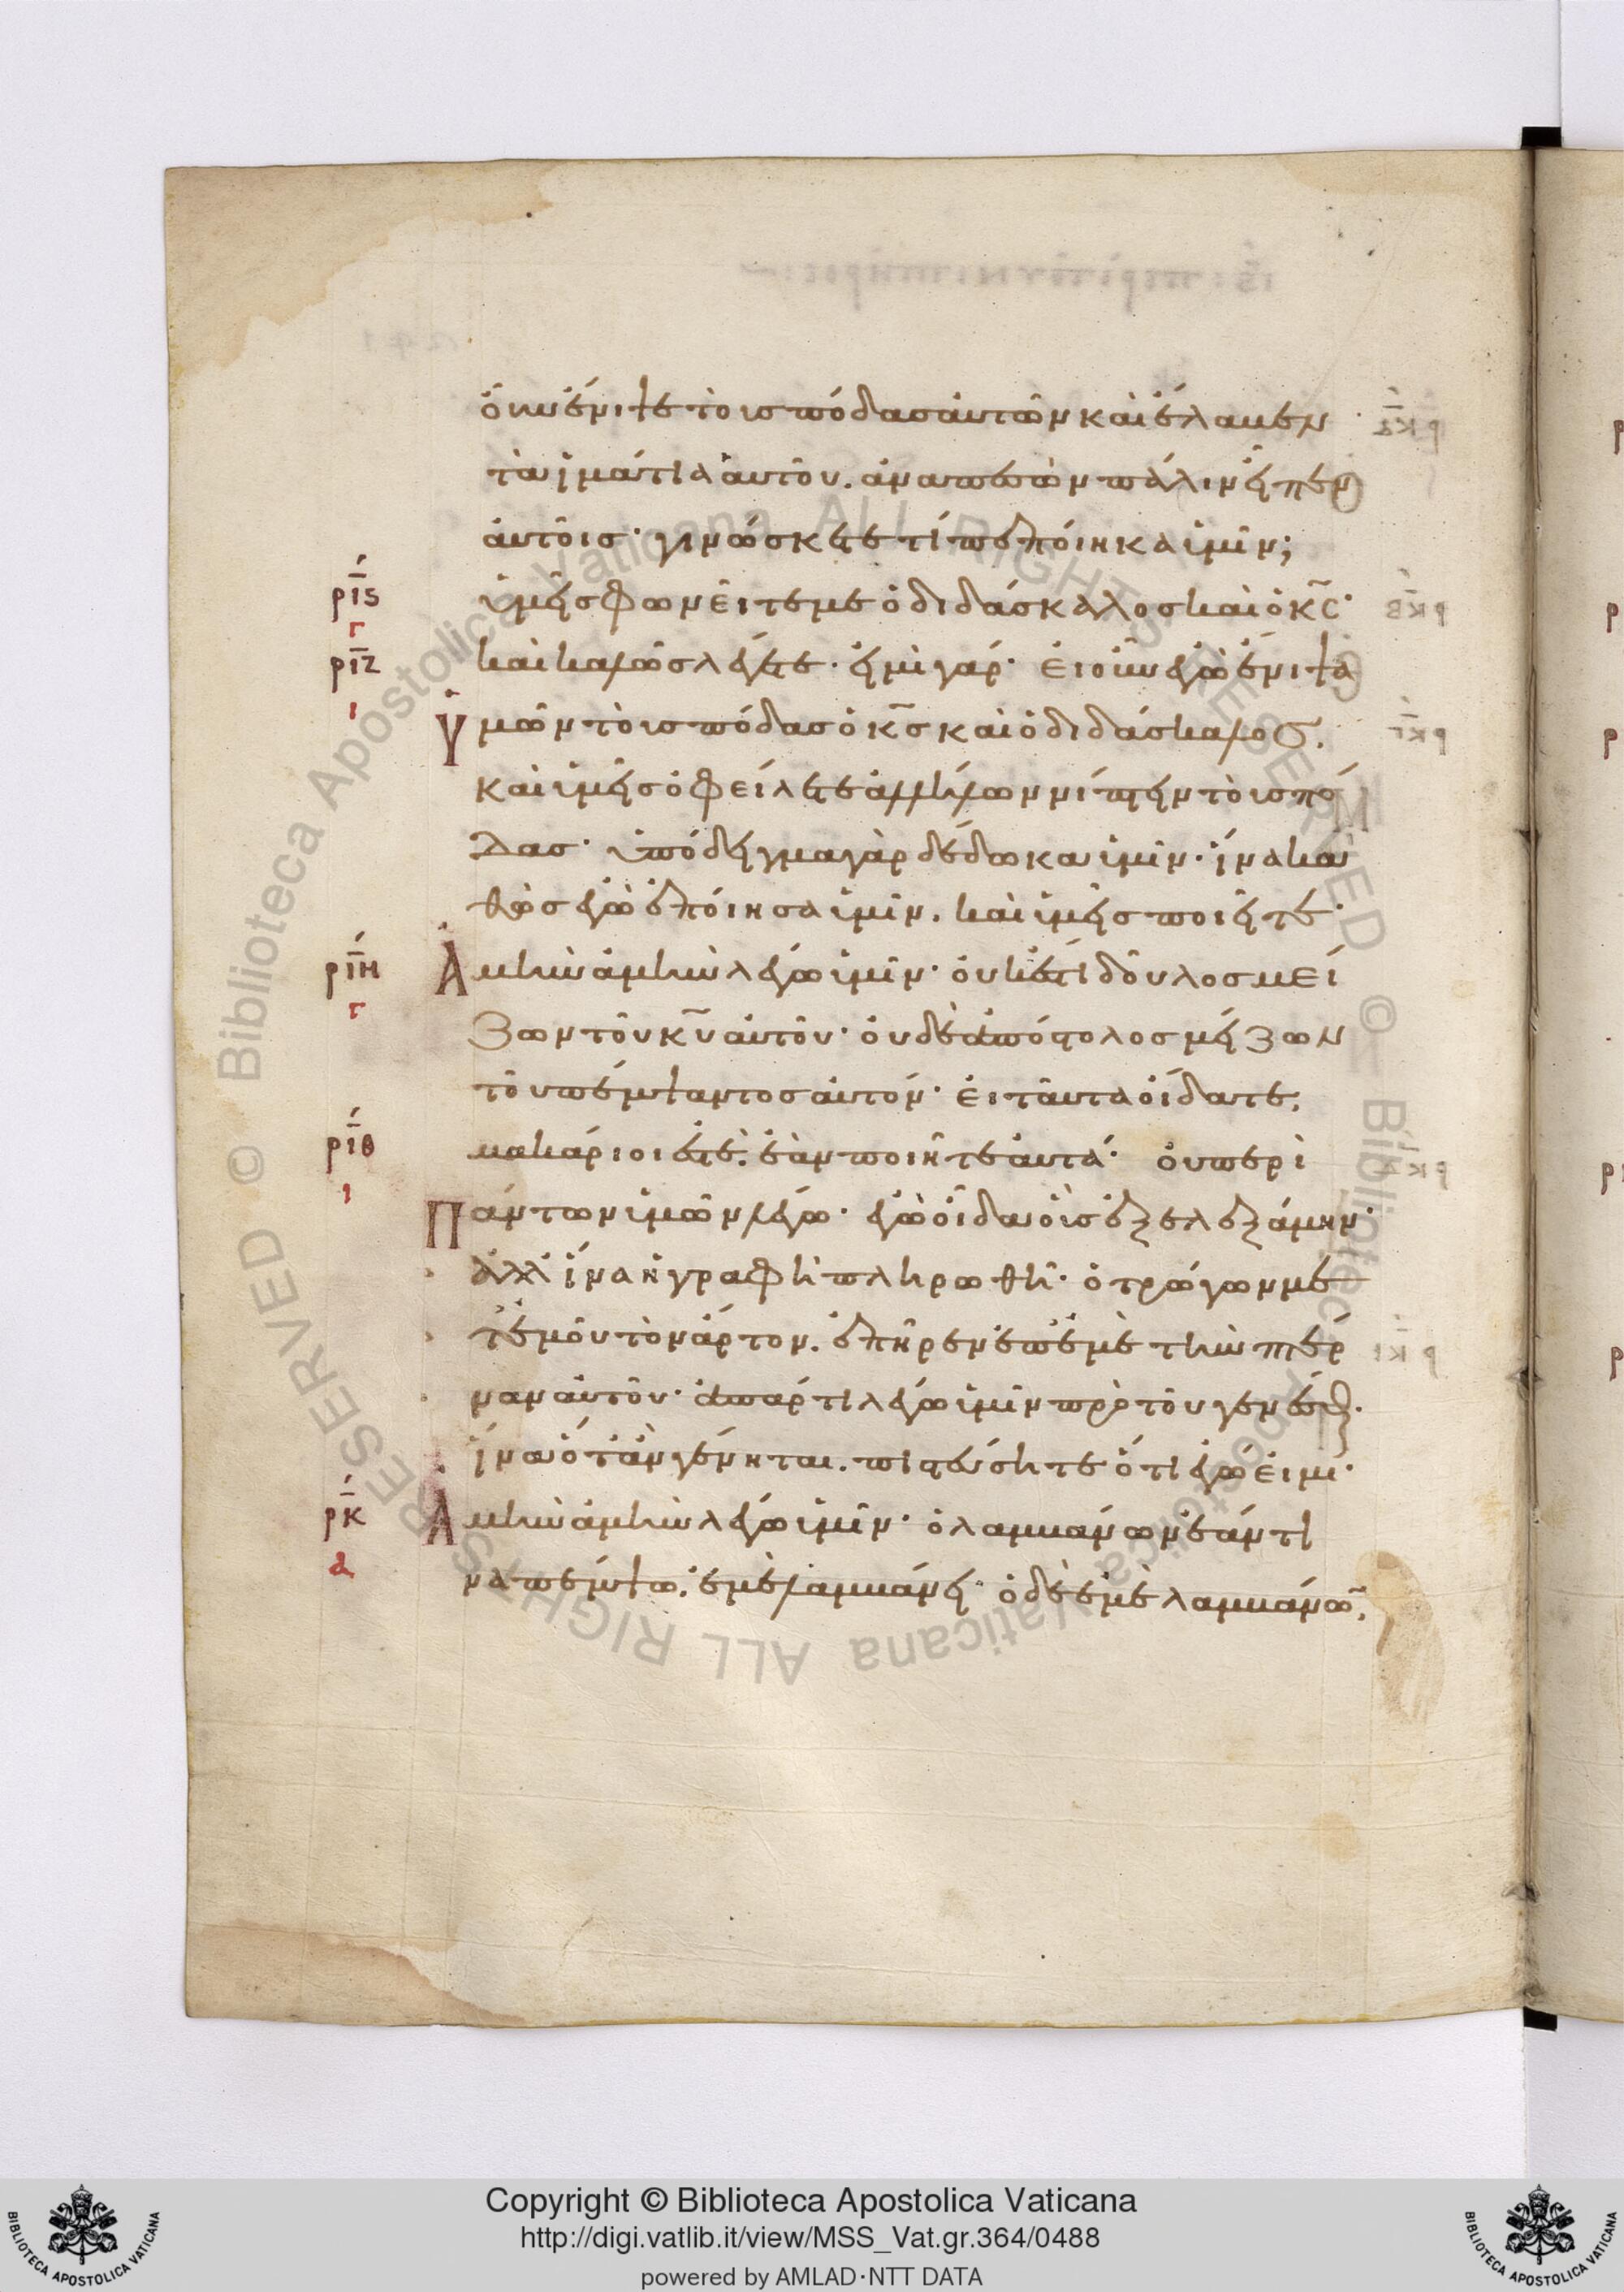 ὅν ἔνιψε τοὺς πόδας αὐτῶν καὶ ἔλαβεν
τὰ ἱμάτια αὐτοῦ. ἀναπεσὼν πάλιν εἶπεν
αὐτοῖς· γινώσκετε τί πεποίηκα ὑμῖν;
ρις ὑμεῖς φωνεῖτέ με ὁ διδάσκαλος καὶ ὁ κς·
γ
ριζ καὶ καλῶς λέγετε· εἰμὶ γάρ· εἰ οὖν ἐγὼ ἔνιψα
ι
ὑμῶν τοὺς πόδας ὁ κς καὶ ὁ διδάσκαλος.
καὶ ὑμεῖς ὀφείλετε ἀλλήλων νίπτειν τοὺς πό
δας· ὑπόδειγμα γὰρ δέδωκα ὑμῖν· ἵνα κα
θὼς ἐγὼ ἐποίησα ὑμῖν. καὶ ὑμεῖς ποιεῖτε·
ριη Ἀμὴν ἀμὴν λέγω ὑμῖν· οὐκ ἔστι δοῦλος μεί
γ
ζων τοῦ κυ αὐτοῦ· οὐδὲ ἀπόστολος μείζων
τοῦ πέμψαντος αὐτόν· εἰ ταῦτα οἴδατε,
ριθ μακάριοί ἐστε. ἐὰν ποιῆτε αὐτά· οὐ περὶ
ι
Πάντων ὑμῶν λέγω· ἐγὼ οἶδα οὓς ἐξελεξάμην·
ἀλλ ἵνα ἡ γραφὴ πληρωθῆ· ὁ τρώγων με
τ ἐμοῦ τὸν ἄρτον. ἐπῆρεν ἐπ ἐμὲ τὴν πτέρ
ναν αὐτοῦ· ἀπάρτι λέγω ὑμῖν πρὸ τοῦ γενέσθαι.
ἵνα ὅταν γένηται. πιστεύσητε ὅτι ἐγώ εἰμι·
ρκ Ἀμὴν ἀμὴν λέγω ὑμῖν· ὁ λαμβάνων ἐάν τι
α
να πέμψω. ἐμὲ λαμβάνει· ὁ δὲ ἐμὲ λαμβάνω,
© Biblioteca Apostolica Vaticana ALL RIGHTS RESERVED © Biblioteca Apostolica Vaticana ALL RIGHTS RESERVED
Copyright © Biblioteca Apostolica Vaticana
http://digi.vatlib.it/view/MSS_Vat.gr.364/0488
powered by AMLAD·NTT DATA
BIBLIOTECA APOSTOLICA VATICANA
BIBLIOTECA APOSTOLICA VATICANA